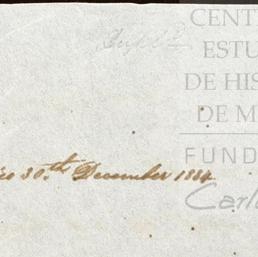 CENT
ESTU
DE HIS
DE M
FUND
Carl
Dupl.
30th December 1884